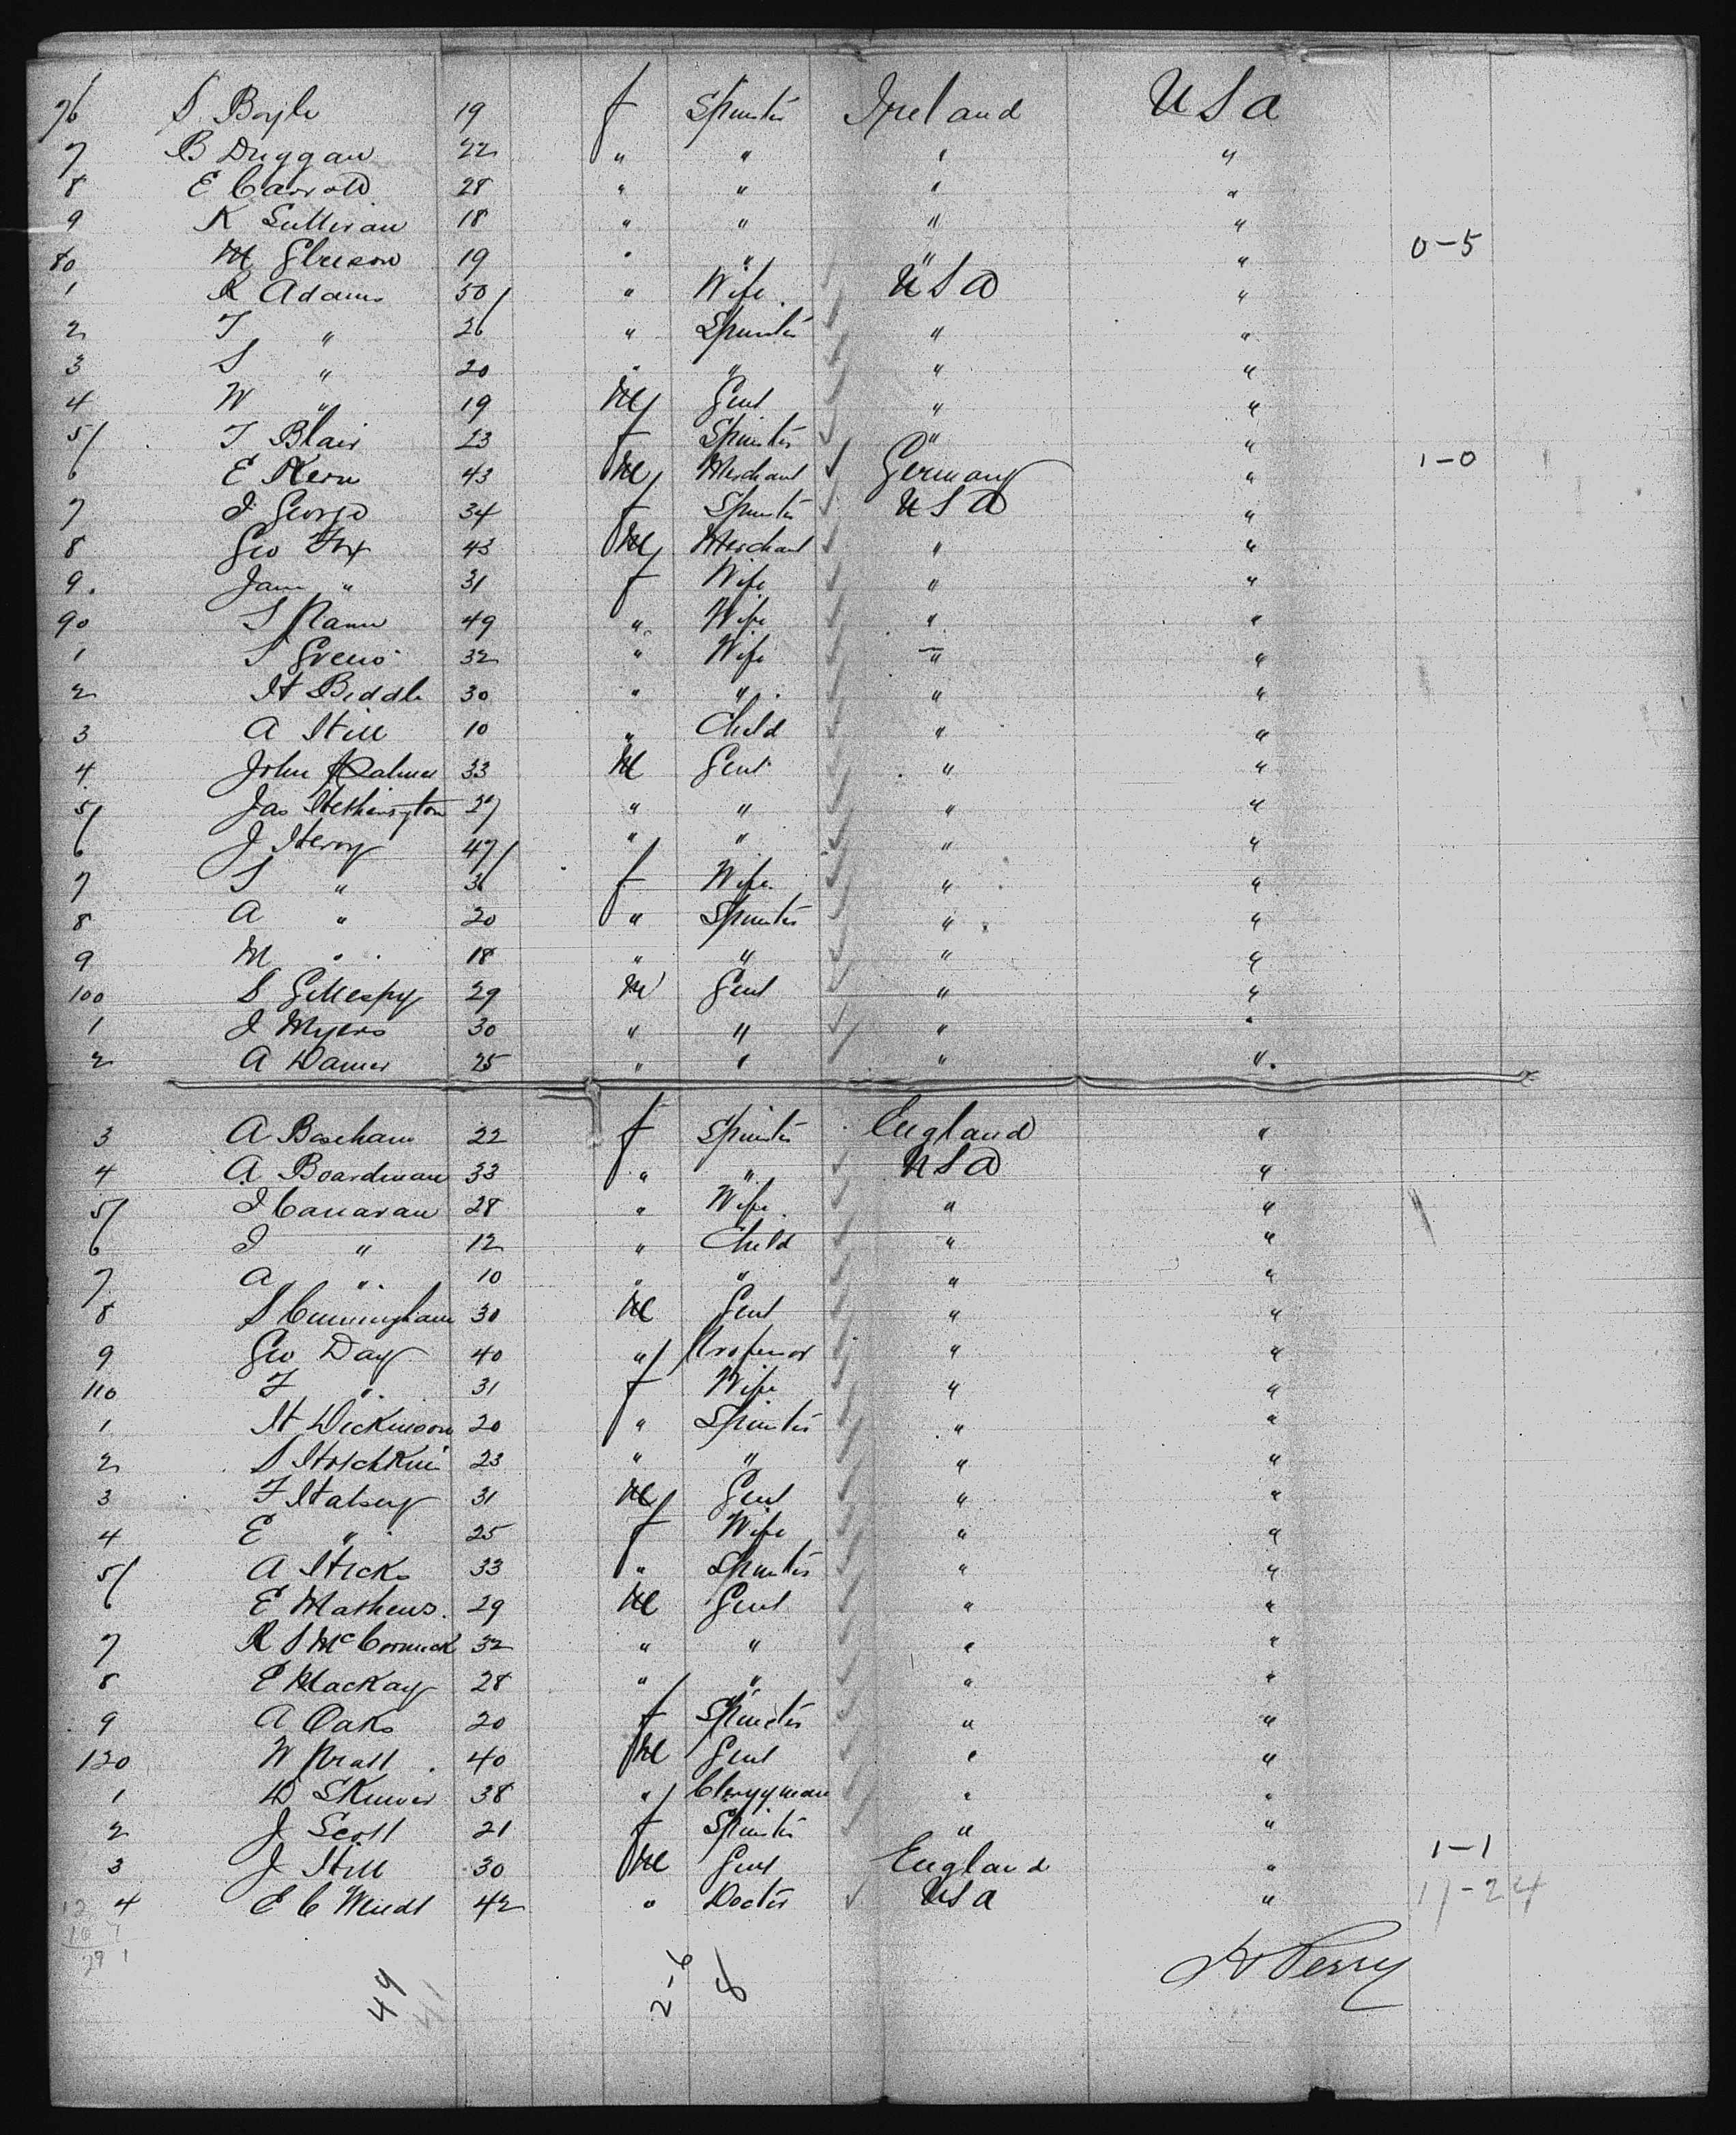 76 S. Boyle 19 f Spinster Ireland USA
7 B Duggan 22 " " " "
8 E Carroll 28 " " " "
9 K Sullivan 18 " " " "
80 M Gleeson 19 " " " " 0-5
1 R Adams 50 " Wife USA "
2 T " 26 " Spinster " "
3 S " 20 " " " "
4 W " 19 M Gent " "
5 T Blair 23 f Spinster " "
6 E Kern 43 M Merchant Germany " 1-0
7 I George 34 f Spinster USA "
8 Geo Fox 43 M Merchant " "
9. Jane " 31 f Wife " "
90 S 49 " Wife " "
1 S 32 " Wife " "
2 H Biddle 30 " " " "
3 A Hill 10 " Child " "
4 John Palmer 33 M Gent " "
5 Jas Hethington 27 " " " "
6 J Henry 47 " " " "
7 S " 36 f Wife " "
8 A " 20 " Spinster " "
9 M " 18 " " " "
100 S Gillespy 29 M Gent " "
1 I Myers 30 " " " "
2 A 25 " " " "
3 A 22 f Spinster England "
4 A Boardman 33 " " USA "
5 I Canavan 28 " Wife " "
6 I " 12 " Child " "
7 A " 10 " " " "
8 S Cunningham 30 M Gent " "
9 Geo Day 40 " Professor " "
110 F " 31 f Wife " "
1 H Dickinson 20 " Spinster " "
2 S Hotchkin 23 " " " "
3 F Halsey 31 M Gent " "
4 E " 25 f Wife " "
5 A Hicks 33 " Spinster " "
6 E Mathews. 29 M Gent " "
7 R S McCormick 32 " " " "
8 E Mackay 28 " " " "
9 A Oaks 20 f Spinster " "
120 W Pratt 40 M Gent " "
1 D Skinner 38 " Clergyman " "
2 J Scott 21 f Spinster " "
3 J Hill 30 M Gent England " 1-1
4 E C Wendt 42 " Doctor USA " 17-24
H Perry
44
2-6
8